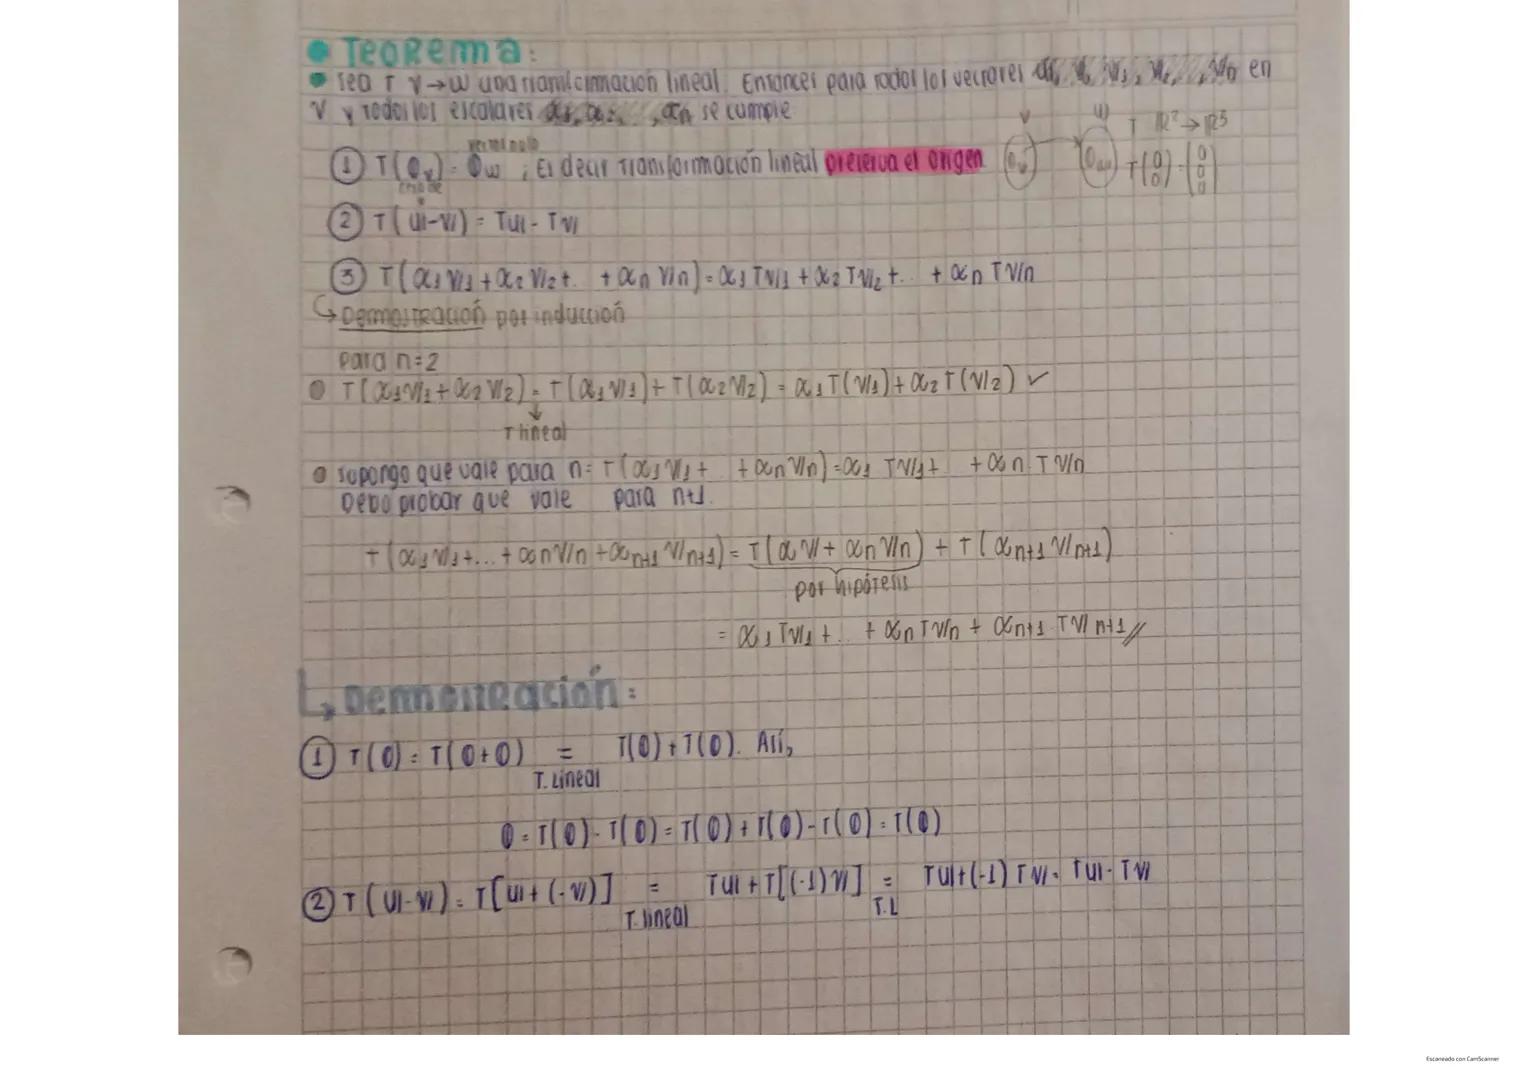 • Teorema:
• Sea T V→W una transformación lineal. Entonces para todos los vectores u, v, v1, v2, ..., vn en
V y todos los escalares α1, α2, ..., αn se cumple
① T(0v) = 0w ; Es decir transformación lineal preserva el origen
V W T ℝ² → ℝ³
T(0 0) = (0 0 0)
② T(u-v) = Tu - Tv
③ T(α1 v1 + α2 v2 + .. + αn vn) = α1 Tv1 + α2 Tv2 + .. + αn Tvn
↳ Demostración por inducción
para n=2
T(α1v1 + α2v2) = T(α1v1) + T(α2v2) = α1T(v1) + α2T(v2) ✓
↓
T lineal
Supongo que vale para n = T(α1v1 + .. + αnvn) = α1 Tv1 + .. + αn Tvn
Debo probar que vale para n+1.
T(α1v1 + ... + αnvn + αn+1 vn+1) = T(αv + αnvn) + T(αn+1 vn+1)
por hipótesis
= α1Tv1 + .. + αnTvn + αn+1 Tvn+1 //
↳ Demostración:
① T(0) = T(0+0) = T(0) + T(0). Así,
T. Lineal
0 = T(0) - T(0) = T(0) + T(0) - T(0) = T(0)
② T(u-v) = T[u + (-v)] = Tu + T[(-1)v] = Tu + (-1)Tv = Tu - Tv
T. lineal T.L
Escaneado con CamScanner